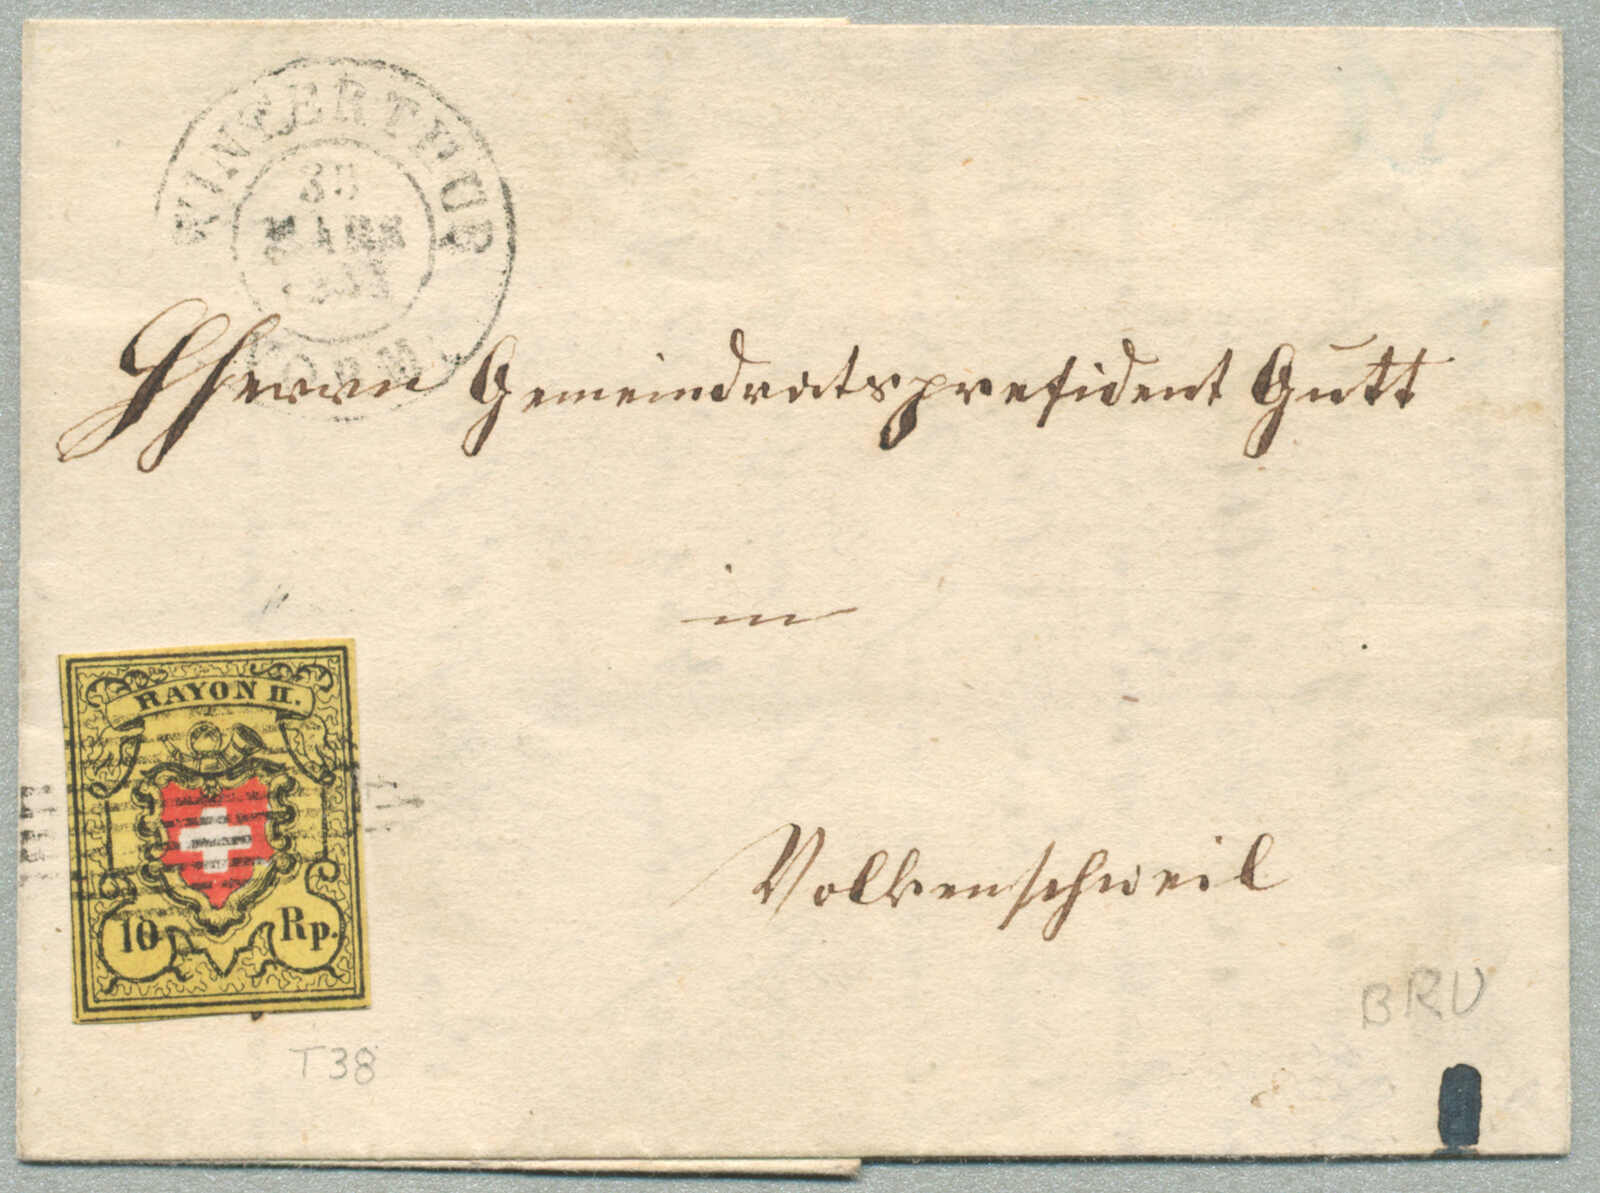 WINTERTHUR
MÄRZ
VORM.
HHerrn Gemeindratspresident Gutt
in
Volkenschweil
RAYON II.
10 Rp.
T38
BRU